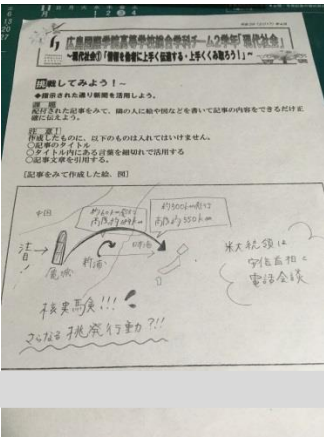 11月
広島国際学院高等学校総合学科チーム2学年「現代社会」
～現代社会の「情報を他者に上手く伝達する・上手くくみ取ろう！」～
挑戦してみよう！～
◆指示された通り新聞を活用しよう。
課題
配付された記事をみて、隣の人に絵や図などを書いて記事の内容をできるだけ正
確に伝えよう。
注意！
作成したものに、以下のものは入れてはいけません。
○記事のタイトル
○タイトル内にある言葉を細切れで活用する
○記事文章を引用する。
［記事をみて作成した絵、図］
中国
高度約550km
米大統領は
安倍首相と
電話会談
核実験!!!
さらなる挑発行動?!!